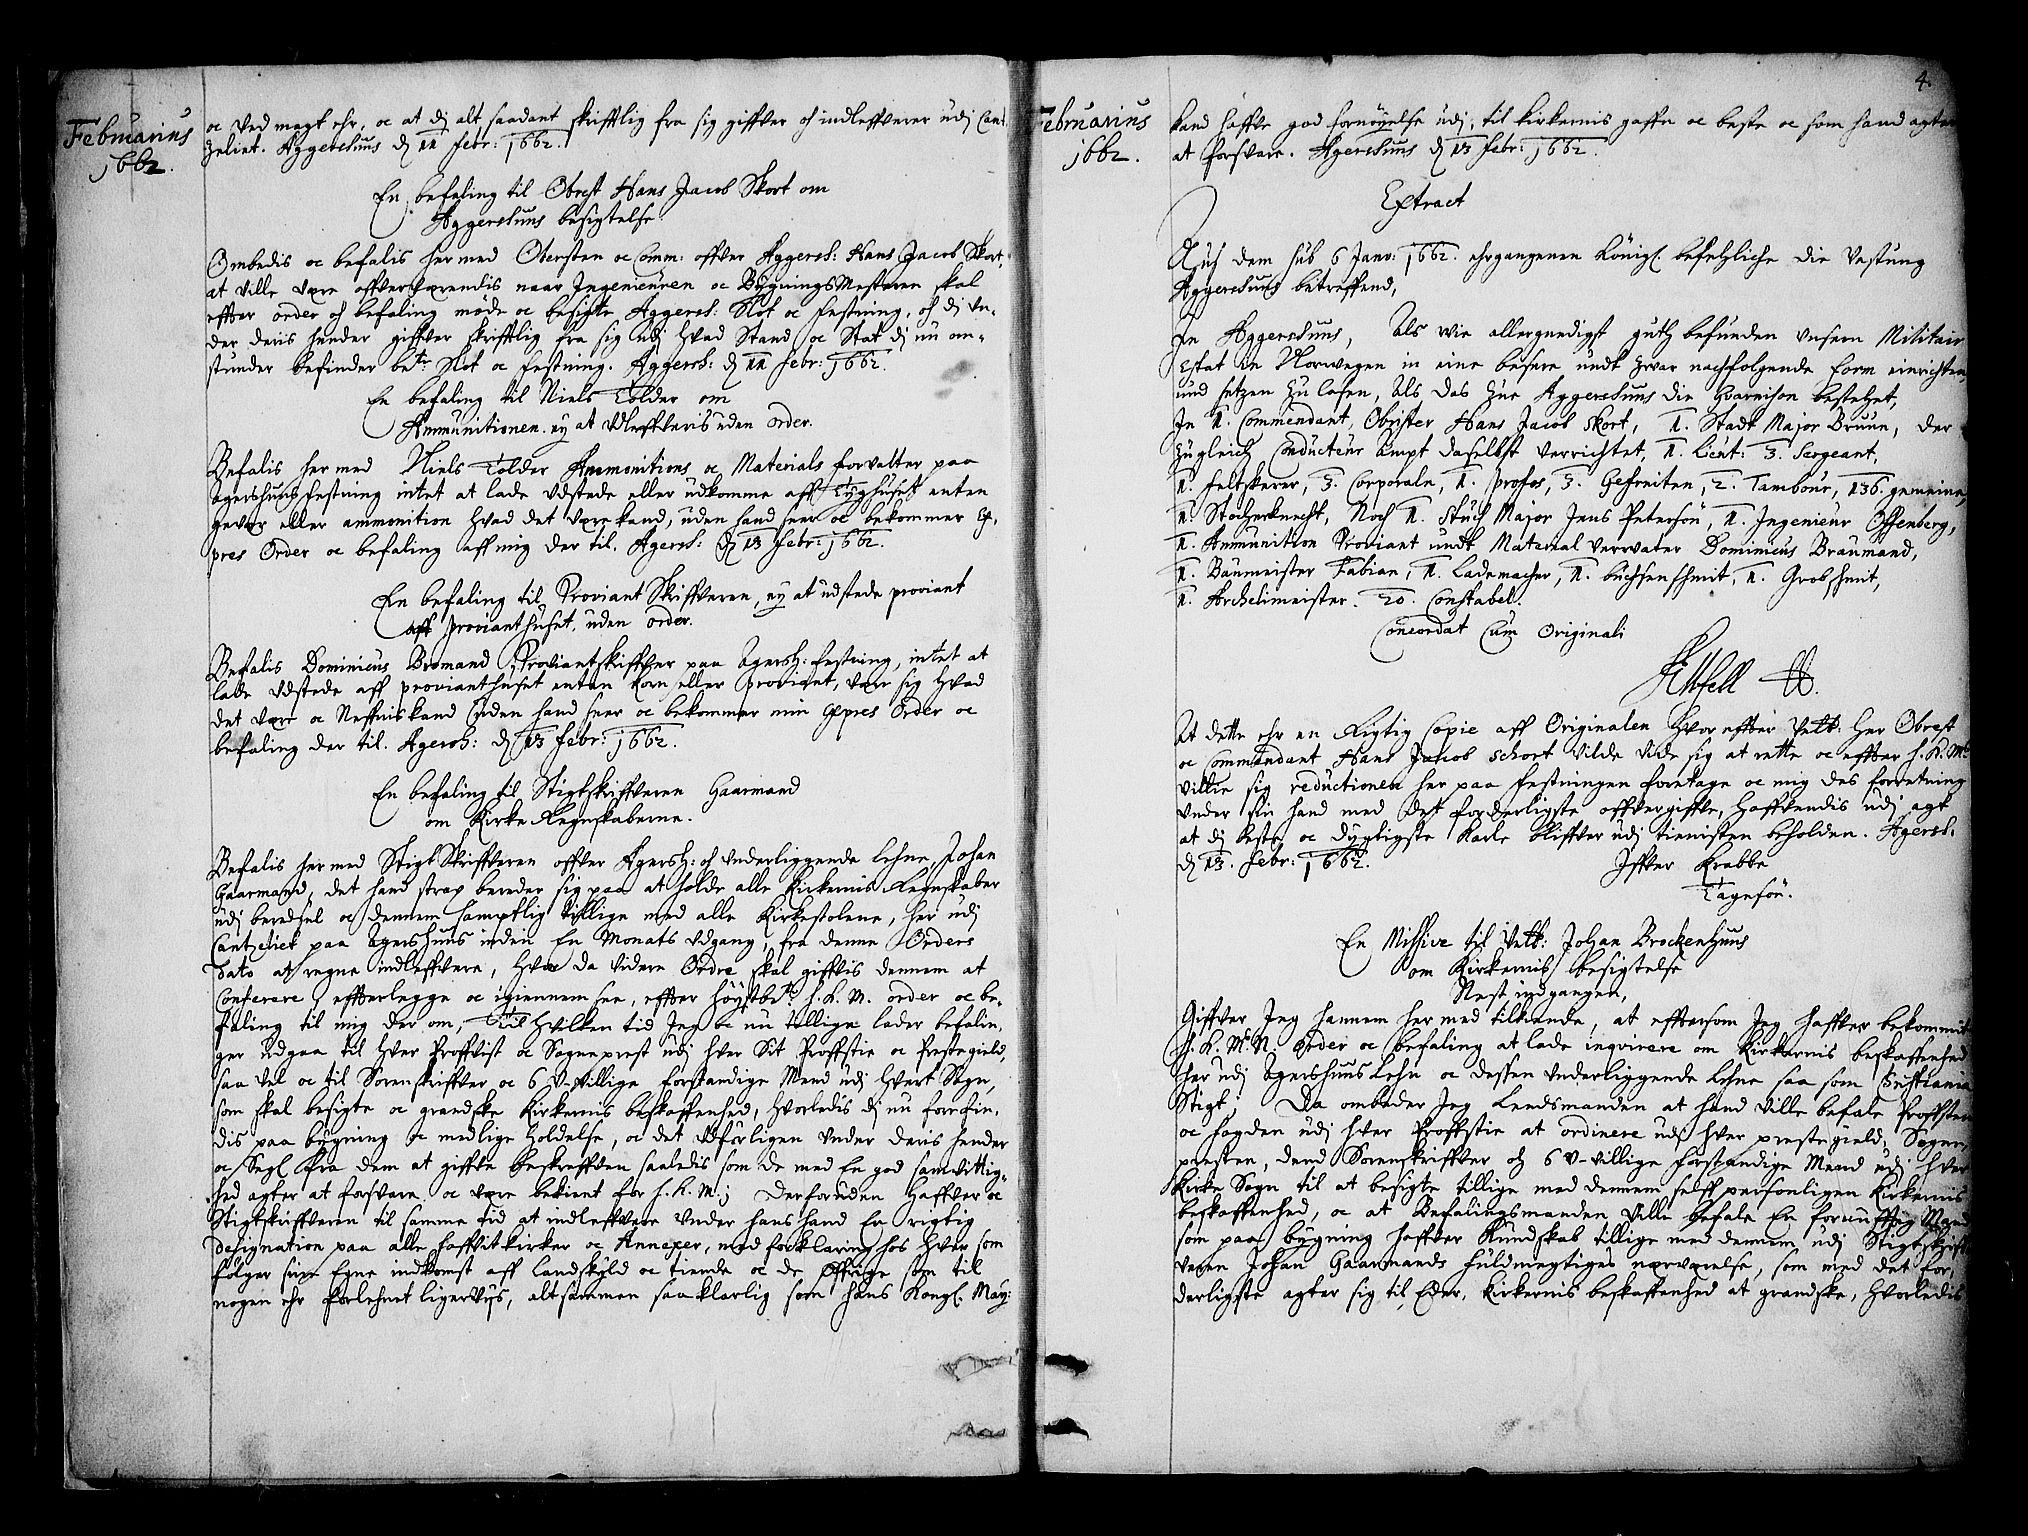 Februarius
1662.
oc ved magt ehr, oc at dj alt saadant skrifftlig fra sig giffver och indleffverer udj Cant-
zeliet. Aggershuus d 11 febr: 1662.
En befaling til Obrest Hans Jacob Skort om
Aggershuus besigtelse.
Ombedis oc befalis hermed Obersten oc Comm: offver Aggersh: Hans Jacob Skort,
at ville være offverværendis naar Ingenieuren oc Bygnings Mesteren skal
effter order och befaling møde oc besigte Aggersh: Slot oc festning, och dj un-
der deris hender giffver skrifftlig fra sig udj hvad Stand oc Stat dj nu om-
stunder befinder bete Slot oc festning. Aggersh: d 11 febr: 1662.
En befaling til Niels Tolder om
Ammunitionen ey at udleffveris uden order.
Befalis hermed Niels Tolder Ammonitions oc Materials forvalter paa
Agershuus festning intet at lade udstede eller udkomme aff Tyghuset enten
gevær eller ammonition hvad det være kand, uden hand seer oc bekommer Ex-
pres Order oc befaling aff mig der til. Agersh: d 13 febr: 1662.
En befaling til Proviant Skriffveren, ey at udstede proviant
aff provianthuset uden order.
Befalis Dominicus Bromand Proviantskriffver paa Agersh: festning, intet at
lade udstede aff provianthuset enten korn eller proviant, være sig hvad
det være oc Neffnis kand uden hand seer oc bekommer min Expres Order oc
befaling der til. Agersh: d 13 febr: 1662.
En befaling til Stigtskriffveren Gaarmand
om Kirke Regnskaberne.
Befalis hermed StigtSkriffveren offver Agersh: och underliggende Lehne, Johan
Gaarmand, det hand strax bereder sig paa at holde alle Kirkernis Regnskaber
udj beredsel oc dennem samptlig tillige med alle Kirkestolene, her udj
Cantzeliet paa Agershuus inden En Monats udgang, fra denne Orders
Dato at regne indleffvere, hvor da videre Ordre skal giffvis dennem at
Conferere, effterlegge oc igiennemsee, effter høystbte: H. K. M. order oc be-
faling til mig der om, Til hvilken tid Jeg oc nu tillige lader befalin-
ger udgaa til hver Proffvist oc Sogneprest udj hver Sit Proffstie oc prestegield,
saa vel oc til Sorenskriffver oc 6 U-villige forstandige Mend udj hvert Sogn,
som skal besigte oc grandske Kirkernis beskaffenhed, hvorledis dj nu forefin-
dis paa bygning oc medlige holdelse, oc det udførligen under deris hender
oc Segl fra dem at giffve beskreffven saaledis som de med En god samvittig-
hed agter at forsvare oc være bekient for H. K. M.; Derforuden haffver oc
Stigtskriffveren til samme tid at indleffvere under hans hand En rigtig
designation paa alle hoffvitkirker oc Annexer, med forklaring hos hver som
følger sine Egne indkomst aff landskyld oc tiende oc de øffrige som til
nogen ehr forlehnet ligerviis, altsammen saa klarlig som hans Kongl. May:
4.
Februarius
1662.
kand haffve god fornøyelse udj, til kirkernis gaffn oc beste oc som hand agter
at forsvare. Agershuus d 13 febr: 1662.
Extract
Auss dem sub 6 Janv: 1662. ehrgangenen Königl. befehliche die Vestung
Aggershuus betreffend,
In Aggershuus, Als wie allergnedigst guth befunden Unsern Militair
Estat in Norwegen in eine besere undt zwar nachfolgende form einrichten
und setzen zu lasen, Als das zue Aggershuus die Guarnison bestehet,
In 1. Commendant, Obrister Hans Jacob Skort, 1. Stadt Major Bruun, der
zugleich Conducteur Ampt daselbst verrichtet, 1. Lieut: 3. Sergeant,
1. feltskerer, 3. Corporale, 1. profos, 3. Gefreiten, 2. Tambour, 136. gemeine,
1. Stockerknecht, Noch 1. Stuck Major Jens Peterson, 1. Ingenieur Offenberg,
1. Ammunition Proviant undt Material Verwater Dominicus Braumand,
1. Baumeister Fabian, 1. Lademacher, 1. büchsenschmit, 1. Grobschmit,
1. Archelimeister. 20. Constabel.
Concordat Cum Originali
At dette ehr en Rigtig Copie aff Originalen hvor effter Velb: Her Obrest
oc Commandant Hans Jacob Schort vilde vide sig at rette oc effter H. K. Ms
villie sig reductionen her paa festningen foretage oc mig des forretning
under sin hand med det forderligste offvergiffve, haffvendis udj agt
at dj beste oc dygtigste Karle bliffver udj tienisten beholden. Agersh.
d 13. febr: 1662.
Iffver Krabbe
Tagesøn.
En Missive til Velb: Johan Brockenhuus
om Kirkernis besigtelse
Nest indgangen,
Giffver Jeg hannem hermed tilkiende, at effttersom Jeg haffver bekommit
H. K. Ms N. order oc befaling at lade inqvirere om Kirkernis beskaffenhed
her udj Agershuus Lehn oc dessen underliggende Lehne saa som Christiania
Stigt; Da ombeder Jeg Lendsmanden at hand ville befale Proffsten
oc fogden udj hver Proffstie at ordinere udj hver prestegield, Sogne-
presten, dend Sorenskriffver och 6 U-villige forstandige Mend udj hver
Kirke Sogn til at besigte tillige med dennem selff personligen Kirkernis
beskaffenhed, oc at Befalingsmanden ville befale En fornufftig Mand
som paa bygning haffver Kundskab tillige med dennem udj Stigtskriff-
veren Johan Gaarmands fuldmegtiges nærværelse, som med det for-
derligste agter sig til Eder, Kirkernis beskaffenhed at grandske, hvorledis